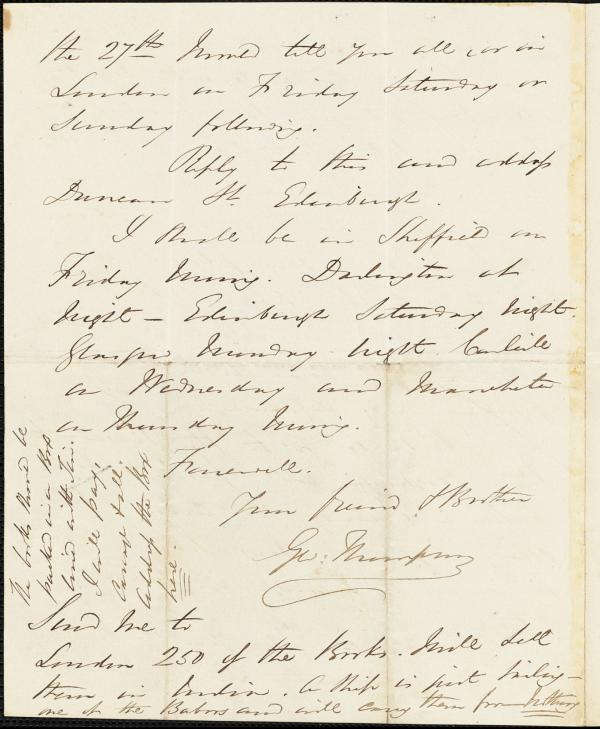 the 27th Would tell you all, or in
London on Friday Saturday or
Sunday following.
Reply to this and address
Duncan St. Edinburgh.
I shall be in Sheffield on
Friday Morning. Darlington at
Night – Edinburgh Saturday Night.
Glasgow Monday night. Carlisle
on Wednesday and Manchester
on Thursday Morning.
Farewell.
Your friend & Brother
Geo: Thompson
Send me to
London 250 of the Books. Will sell
them in India. A Ship is just sailing –
one of the and will carry them for nothing
The books should be
packed in a Box
lined with Tin.
I will pay
carriage & all.
Address the Box
here.